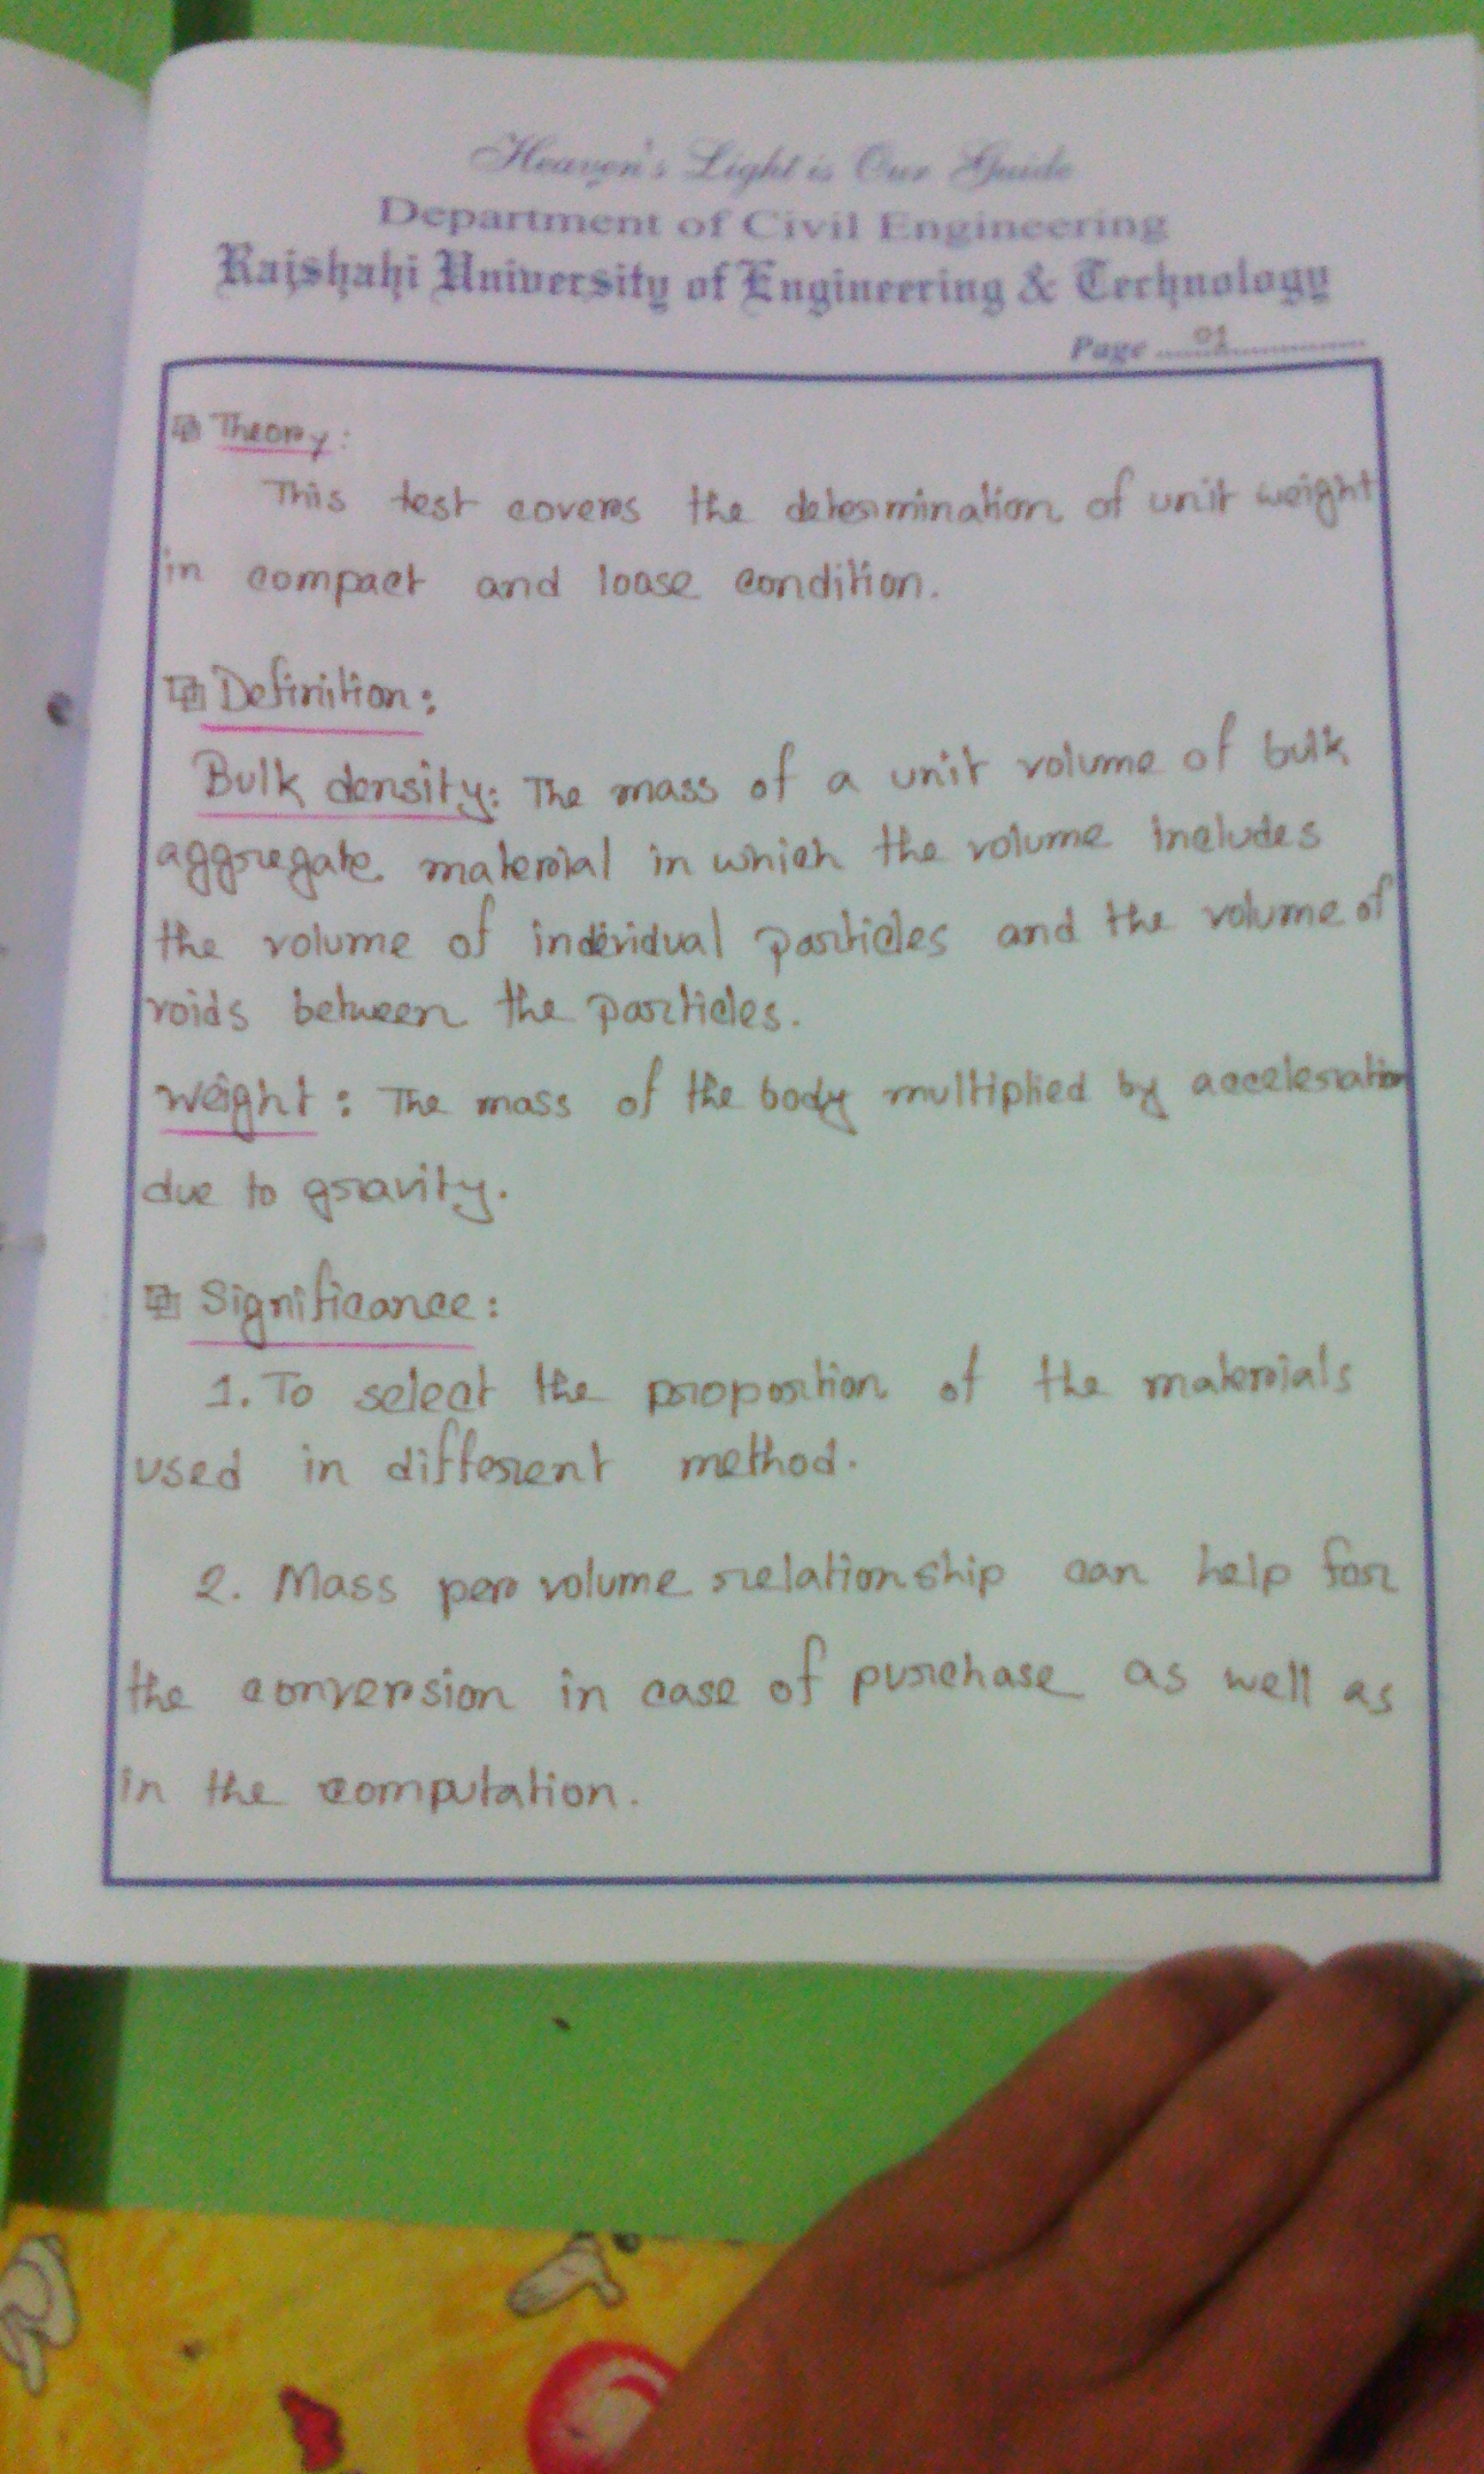 Heaven's Light is Our Guide
Department of Civil Engineering
Rajshahi University of Engineering & Technology
Page 01
Theory:
This test covers the determination of unit weight
in compact and loose condition.
Definition:
Bulk density: The mass of a unit volume of bulk
aggregate material in which the volume includes
the volume of individual particles and the volume of
voids between the particles.
Weight: The mass of the body multiplied by acceleration
due to gravity.
Significance:
1. To select the proportion of the materials
used in different method.
2. Mass per volume relationship can help for
the conversion in case of purchase as well as
in the computation.